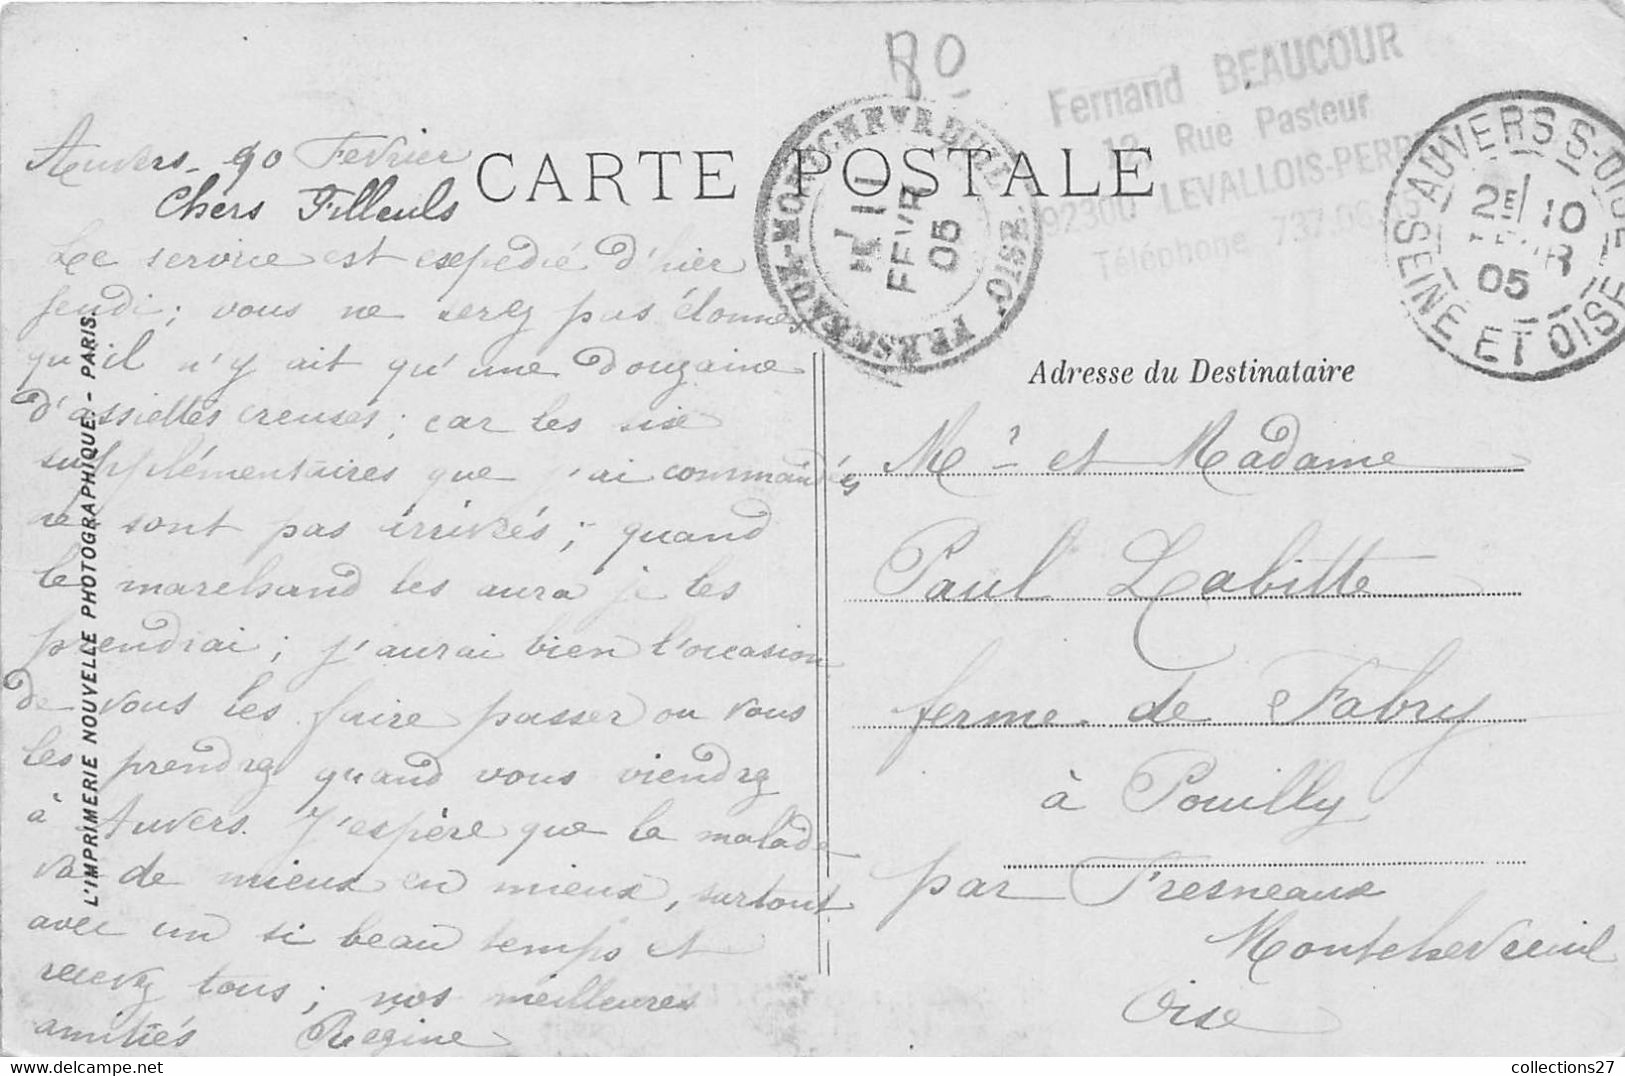 80
Fernand BEAUCOUR
12, Rue Pasteur
92300 LEVALLOIS-PERR
Téléphone 737.06.
CARTE POSTALE
FRESNEAUX-MONTCHEVREUIL OISE
11
FEVR
05
AUVERS S-OISE
SEINE ET OISE
2E 10
05
Auvers - 90 Fevrier
Chers Filleuls
Le service est expédié d'hier
jeudi ; vous ne serez pas étonnés
qu'il n'y ait qu'une douzaine
d'assiettes creuses ; car les six
supplémentaires que j'ai commandées
ne sont pas arrivées ; quand
le marchand les aura je les
prendrai ; j'aurai bien l'occasion
de vous les faire passer ou vous
les prendrez quand vous viendrez
à Auvers. J'espère que la malade
va de mieux en mieux, surtout
avec un si beau temps et
recevez tous ; nos meilleures
amitiés Regine
L'IMPRIMERIE NOUVELLE PHOTOGRAPHIQUE - PARIS.
Adresse du Destinataire
Mr et Madame
Paul Labitte
ferme de Fabry
à Pouilly
par Fresneaux
Montchevreuil
Oise
collections27